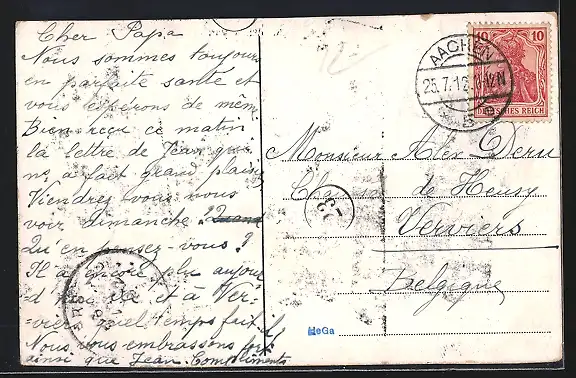 Cher Papa
Nous sommes toujours
en parfaite santé et
vous espérons de même
Bien reçu ce matin
la lettre de Jean qui
m'a fait grand plaisir
Viendrez vous nous
voir dimanche?
Qu'en pensez-vous?
Il a encore plu aujour
d'hui ici et à Ver-
viers quel temps fait il
Nous vous embrassons
ainsi que Jean. Compliments
AACHEN
25.7.12
5 e
10 10
DEUTSCHES REICH
Monsieur Alex Deru
de Heusy
Verviers
Belgique
HeGa